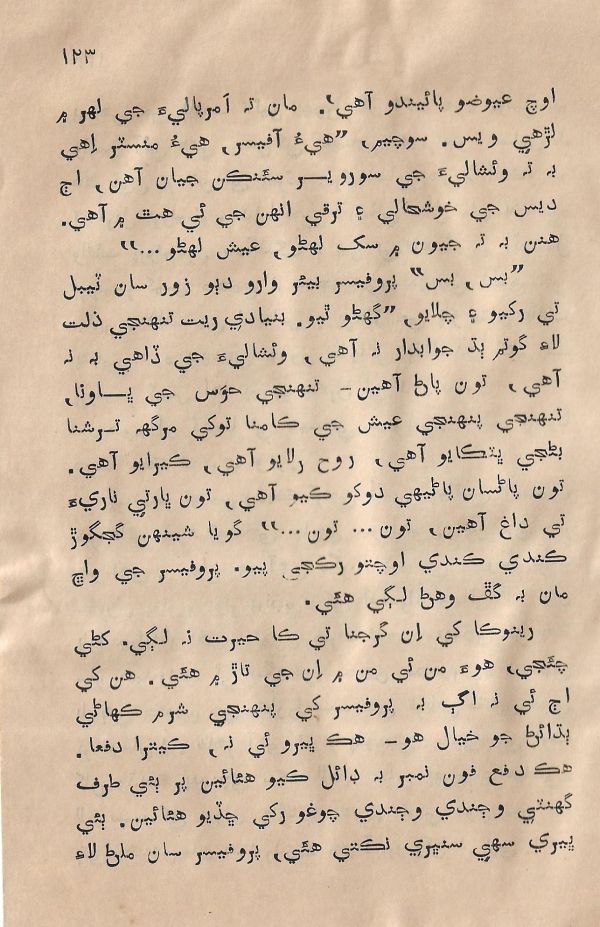 ١٢٣
اوچ عيوضو پائيندو آهي'. مان تہ آمرپاليءَ جي لهر ۾
لڙهي ويس. سوچيم, ”هيءُ آفيسر, هيءُ منسٽر اِهي
بہ تہ وئشاليءَ جي سوروير سئنڪن جيان آهن, اڄ
ديس جي خوشحالي ۽ ترقي انهن جي ئي هٿ ۾ آهي.
هنن بہ تہ جيون ۾ سک لهڻو, عيش لهڻو...“
”بس, بس“ پروفيسر بيئر وارو دٻو زور سان ٽيبل
تي رکيو ۽ چلايو, ”گهڻو ٿيو. بنيادي ريت تنهنجي ذلت
لاءِ گوتم ٻڌ جوابدار نہ آهي, وئشاليءَ جي ڏاهي بہ نہ
آهي, تون پاڻ آهين- تنهنجي حوَس جي ڀاونا,
تنهنجي پنهنجي عيش جي ڪامنا توکي مرگهہ ترشنا
بڻجي ڀٽڪايو آهي, روح رلايو آهي, ڪيرايو آهي.
تون پاڻسان پاڻيهي دوکو ڪيو آهي, تون ڀارتي ناريءَ
تي داغ آهين, تون... تون...“ گويا شينهن گجگوڙ
ڪندي ڪندي اوچتو رڪجي پيو. پروفيسر جي واڇ
مان بہ گڦ وهڻ لڳي هئي.
رينوڪا کي اِن گرجنا تي ڪا حيرت نہ لڳي. ڪٿي
چئجي, هوءَ من ئي من ۾ اِن جي تاڙ ۾ هئي. هن کي
اڄ ئي نہ اڳ بہ پروفيسر کي پنهنجي شرم ڪهاڻي
ٻڌائڻ جو خيال هو- هڪ ڀيرو ئي نہ, ڪيترا دفعا.
هڪ دفع فون نمبر بہ ڊائل ڪيو هئائين پر ٻئي طرف
گهنٽي وڄندي وڄندي چوغو رکي ڇڏيو هئائين. ٻئي
ڀيري سهي سنڀري نڪتي هئي, پروفيسر سان ملڻ لاءِ